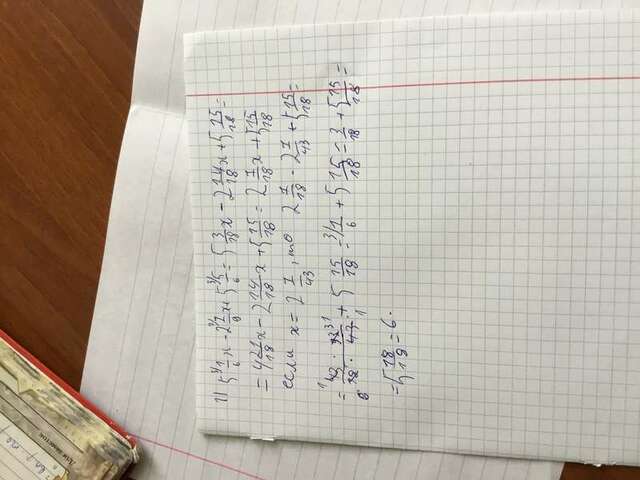 Для заметок
1) 5 3/1/6 x - 2 2/7/9 x + 5 3/5/6 = 5 3/18 x - 2 14/18 x + 5 15/18 =
= 4 21/18 x - 2 14/18 x + 5 15/18 = 2 7/18 x + 5 15/18
если x = 2 7/43, то 2 7/18 · 2 7/43 + 5 15/18 =
= 43 · 93 / 18 · 43 + 5 15/18 = 3/1/6 + 5 15/18 = 3/18 + 5 15/18 =
= 5 18/18 = 6.